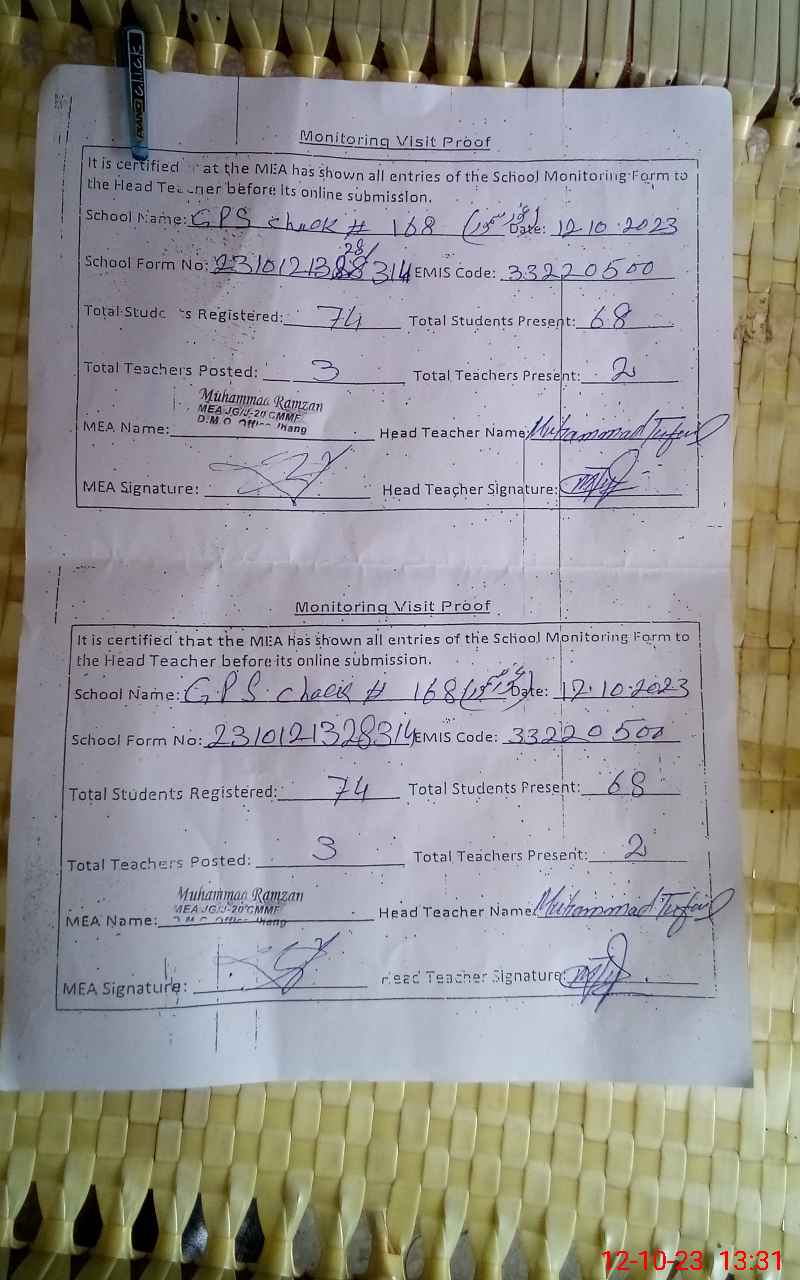 CLICK
Monitoring Visit Proof
It is certified at the MEA has shown all entries of the School Monitoring Form to
the Head Teacher before its online submission.
School Name: GPS chack # 168 Date: 12.10.2023
28/
School Form No: 2310121388314 EMIS Code: 33220500
Total Students Registered: 74 Total Students Present: 68
Total Teachers Posted: 3 Total Teachers Present: 2
Muhammad Ramzan
MEA JG/J-20 CMMF
D.M.O Office Jhang
MEA Name: Head Teacher Name: Muhammad Tufail
MEA Signature: Head Teacher Signature:
Monitoring Visit Proof
It is certified that the MEA has shown all entries of the School Monitoring Form to
the Head Teacher before its online submission.
School Name: G.P.S. chack # 168 Date: 12.10.2023
School Form No: 2310121328314 EMIS Code: 33220500
Total Students Registered: 74 Total Students Present: 68
Total Teachers Posted: 3 Total Teachers Present: 2
Muhammad Ramzan
MEA JG/J-20 CMMF
D.M.O Office Jhang
MEA Name: Head Teacher Name: Muhammad Tufail
MEA Signature: Head Teacher Signature:
12-10-23 13:31